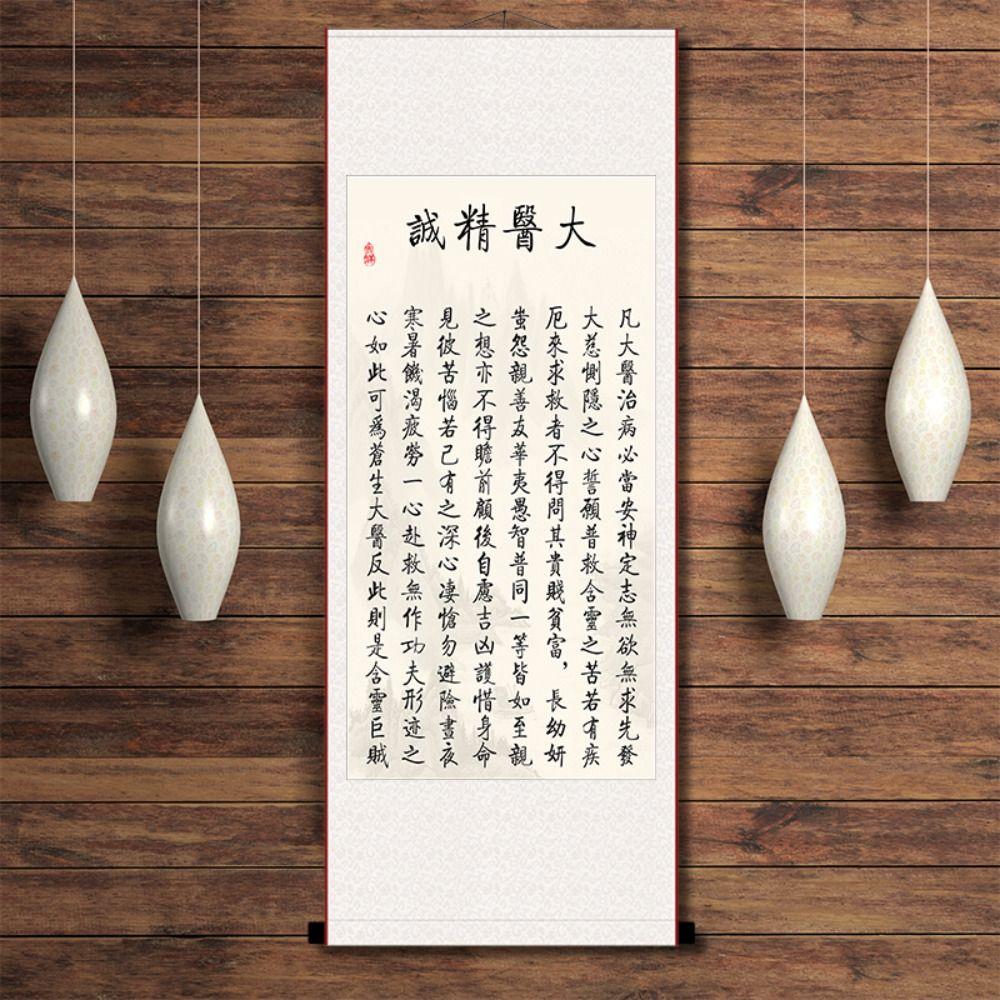 大醫精誠
凡大醫治病必當安神定志無欲無求先發
大慈惻隱之心誓願普救含靈之苦若有疾
厄來求救者不得問其貴賤貧富，長幼妍
蚩怨親善友華夷愚智普同一等皆如至親
之想亦不得瞻前顧後自慮吉凶護惜身命
見彼苦惱若己有之深心凄愴勿避險晝夜
寒暑饑渴疲勞一心赴救無作功夫形迹之
心如此可爲蒼生大醫反此則是含靈巨賊